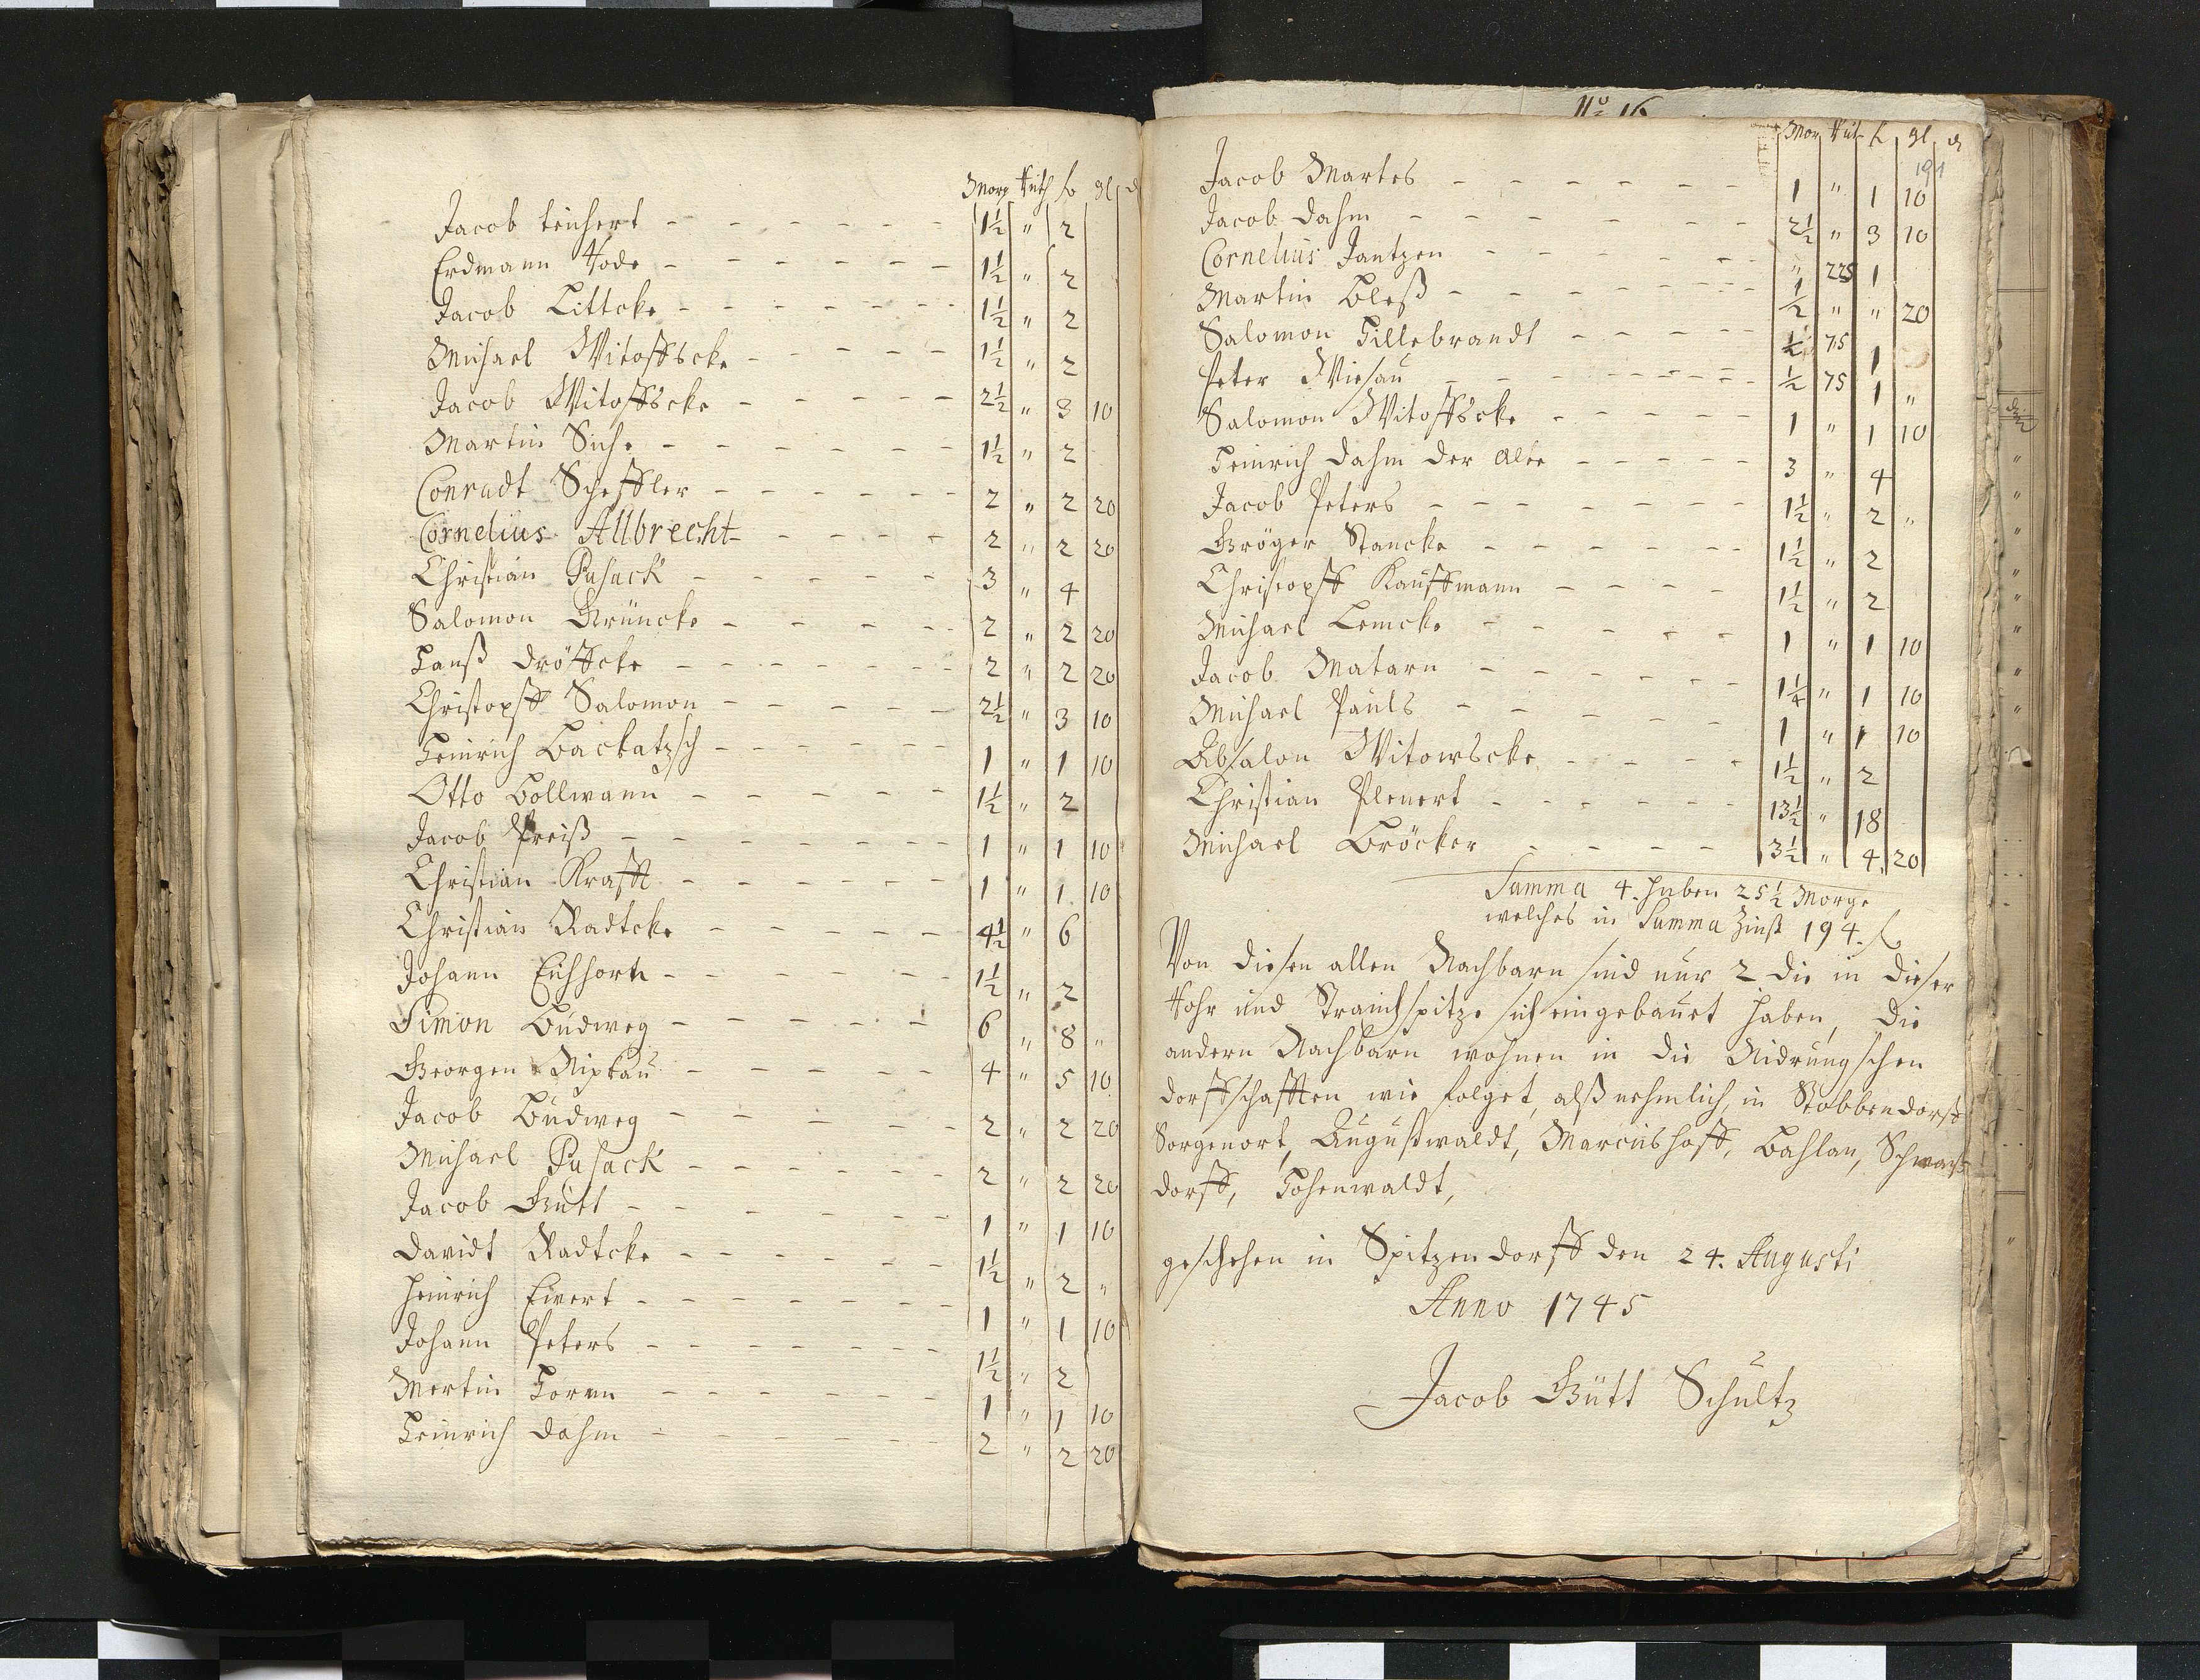 Morg Ruth fl gl d
Jacob Teichert - - - - - - 1½ " 2
Erdmann Hode - - - - - - 1½ " 2
Jacob Littcke - - - - - - 1½ " 2
Michael Witoffscke - - - - - 1½ " 2
Jacob Witoffscke - - - - - 2½ " 3 10
Martin Sich - - - - - - 1½ " 2
Conradt Scheffler - - - - - - 2 " 2 20
Cornelius Allbrecht - - - - 2 " 2 20
Christian Pusack - - - - - - 3 " 4
Salomon Grüncke - - - - - 2 " 2 20
Hanß Dröffcke - - - - - - - 2 " 2 20
Christopff Salomon - - - - - 2½ " 3 10
Heinrich Backatzsch - - - - - - 1 " 1 10
Otto Bollwann - - - - - - 1½ " 2
Jacob Preiß - - - - - - - 1 " 1 10
Christian Krafft - - - - - - 1 " 1 10
Christian Radtcke - - - - - 4½ " 6
Johann Eichhorn - - - - - - 1½ " 2
Simon Budweg - - - - - - 6 " 8 "
Georgen Nipkau - - - - - 4 " 5 10
Jacob Budweg - - - - - 2 " 2 20
Michael Pusack - - - - - - 2 " 2 20
Jacob Gütt - - - - - - 1 " 1 10
Davidt Radtcke - - - - - - 1½ " 2 "
Heinrich Ewert - - - - - - - 1 " 1 10
Johann Peters - - - - - - - 1½ " 2
Mertin - - - - - - 1 " 1 10
Heinrich Dahm - - - - - - 2 " 2 20
No 16
Mor Rut fl gl d
191
Jacob Martes - - - - - - 1 " 1 10
Jacob Dahm - - - - - - 2½ " 3 10
Cornelius Jantzen - - - - - - " 225 1
Martin Bleß - - - - - - ½ " " 20
Salomon Hillebrandt - - - - - ½ 75 1
Peter Wiesau - - - - - - ½ 75 1 "
Salomon Witoffscke - - - - - 1 " 1 10
Heinrich Dahm der Alte - - - - - 3 " 4
Jacob Peters - - - - - - - 1½ " 2 "
Gröger Stancke - - - - - - 1½ " 2
Christopff Kauffmann - - - - 1½ " 2
Michael Lemcke - - - - - 1 " 1 10
Jacob Matarn - - - - - - 1¼ " 1 10
Michael Pauls - - - - - - 1 " 1 10
Absalon Witowscke - - - - - 1½ " 2
Christian Plenert - - - - - - 13½ " 18
Michael Bröcker - - - - 3½ " 4 20
Summa 4. Huben 25½ Morge
welches in Summa Zinß 194. fl
Von diesen allen Nachbarn sind nur 2 die in dieser
Hohr und Strauchspitze sich eingebauet haben, die
andern Nachbarn wohnen in die Nidrungschen
dorffschafften wie folget, alß nehmlich, in Stobbendorff
Sorgenort, Augustwaldt, Marcushoff, Bahlau, Schwans
dorff, Hohenwaldt,
geschehen in Spitzendorff den 24. Augusti
Anno 1745
Jacob Gütt Schultz